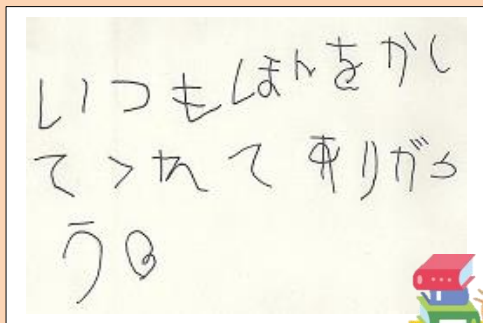 いつもほんをかし
てくれてありがと
う